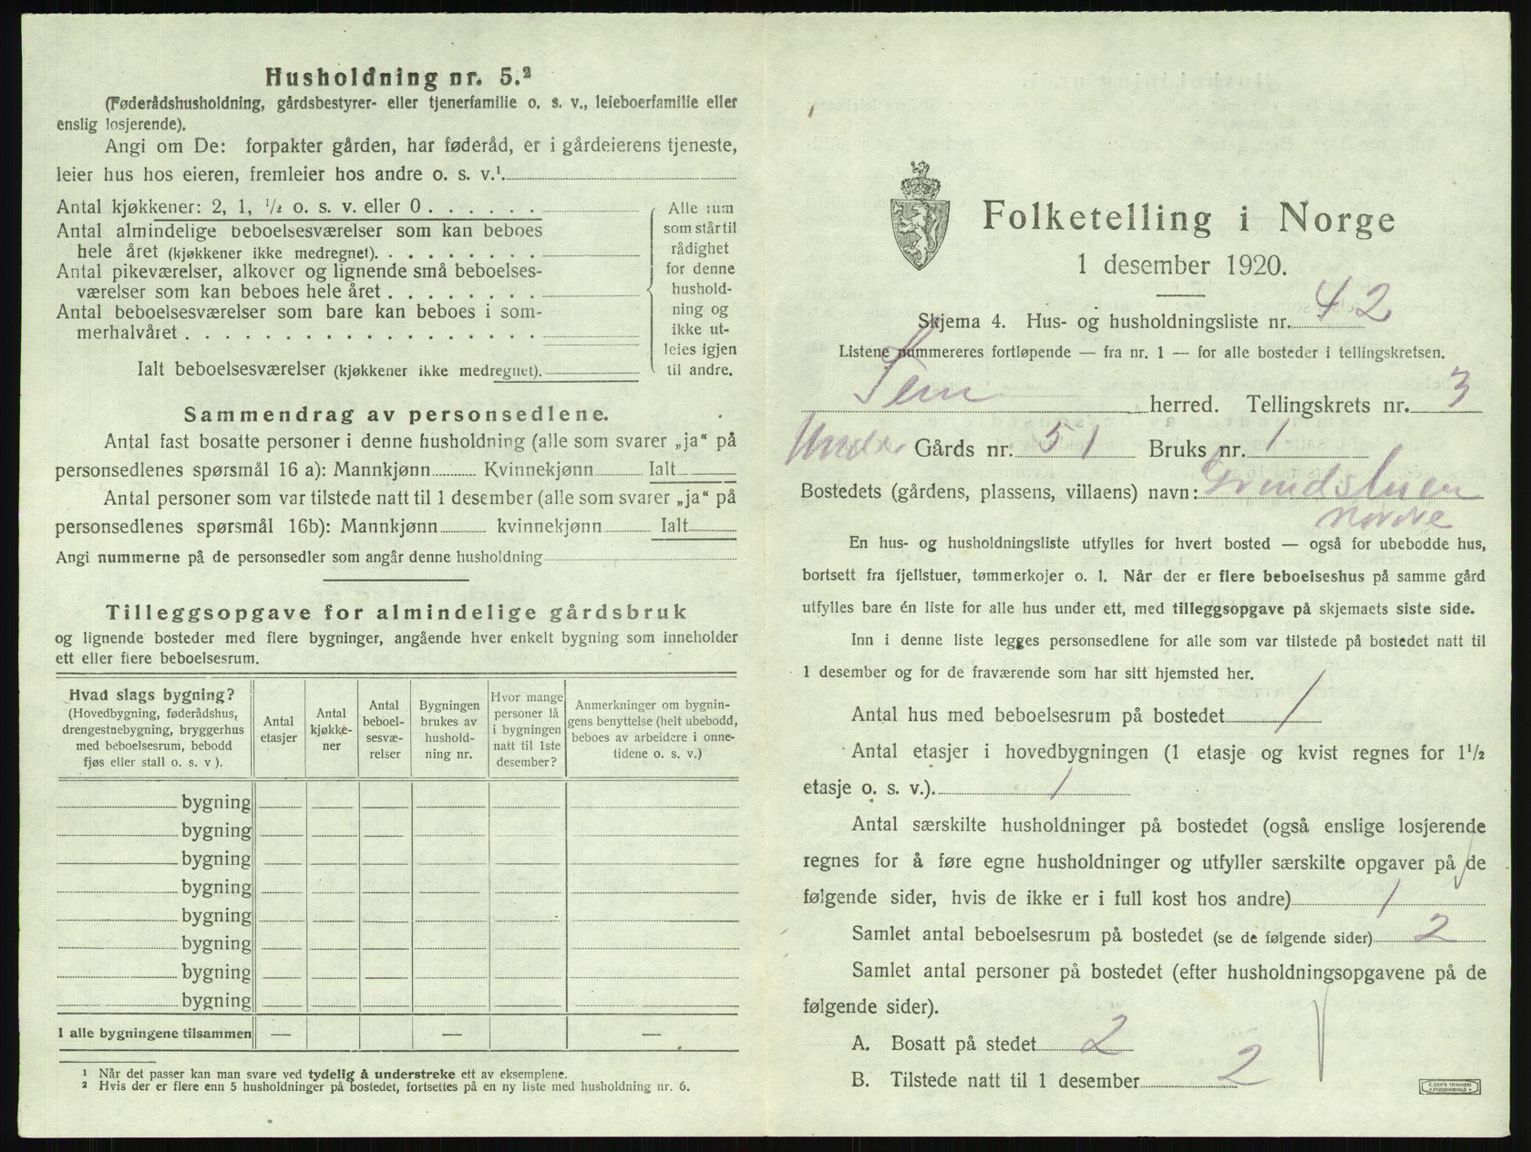 Husholdning nr. 5.²
(Føderådshusholdning, gårdsbestyrer- eller tjenerfamilie o. s. v., leieboerfamilie eller
enslig losjerende).
Angi om De: forpakter gården, har føderåd, er i gårdeierens tjeneste,
leier hus hos eieren, fremleier hos andre o. s. v.¹.
Antal kjøkkener: 2, 1, ½ o. s. v. eller 0 . . . . . .
Antal almindelige beboelsesværelser som kan beboes
hele året (kjøkkener ikke medregnet). . . . . . . . .
Antal pikeværelser, alkover og lignende små beboelses-
værelser som kan beboes hele året . . . . . . . .
Antal beboelsesværelser som bare kan beboes i som-
merhalvåret . . . . . . . . . . . . . . . . . .
Ialt beboelsesværelser (kjøkkener ikke medregnet).
Alle rum
som står til
rådighet
for denne
hushold-
ning og
ikke ut-
leies igjen
til andre.
Sammendrag av personsedlene.
Antal fast bosatte personer i denne husholdning (alle som svarer „ja“ på
personsedlenes spørsmål 16 a): Mannkjønn Kvinnekjønn Ialt
Antal personer som var tilstede natt til 1 desember (alle som svarer „ja“ på
personsedlenes spørsmål 16b): Mannkjønn kvinnekjønn Ialt
Angi nummerne på de personsedler som angår denne husholdning
Tilleggsopgave for almindelige gårdsbruk
og lignende bosteder med flere bygninger, angående hver enkelt bygning som inneholder
ett eller flere beboelsesrum.
Hvad slags bygning?
(Hovedbygning, føderådshus,
drengestuebygning, bryggerhus
med beboelsesrum, bebodd
fjøs eller stall o. s. v).
Antal
etasjer
Antal
kjøkke-
ner
Antal
beboel-
sesvæ-
relser
Bygningen
brukes av
hushold-
ning nr.
Hvor mange
personer lå
i bygningen
natt til 1ste
desember?
Anmerkninger om bygnin-
gens benyttelse (helt ubebodd,
beboes av arbeidere i onne-
tidene o. s. v.)
bygning
bygning
bygning
bygning
bygning
bygning
bygning
bygning
I alle bygningene tilsammen — — —
¹ Når det passer kan man svare ved tydelig å understreke ett av eksemplene.
² Hvis der er flere enn 5 husholdninger på bostedet, fortsettes på en ny liste med husholdning nr. 6.
Folketelling i Norge
1 desember 1920.
Skjema 4. Hus- og husholdningsliste nr. 42
Listene nummereres fortløpende — fra nr. 1 — for alle bosteder i tellingskretsen.
Sem herred. Tellingskrets nr. 3
Under Gårds nr. 51 Bruks nr. 1
Bostedets (gårdens, plassens, villaens) navn: Grindstuen
Nordre
En hus- og husholdningsliste utfylles for hvert bosted — også for ubebodde hus,
bortsett fra fjellstuer, tømmerkojer o. l. Når der er flere beboelseshus på samme gård
utfylles bare én liste for alle hus under ett, med tilleggsopgave på skjemaets siste side.
Inn i denne liste legges personsedlene for alle som var tilstede på bostedet natt til
1 desember og for de fraværende som har sitt hjemsted her.
Antal hus med beboelsesrum på bostedet 1
Antal etasjer i hovedbygningen (1 etasje og kvist regnes for 1½
etasje o. s. v.). 1
Antal særskilte husholdninger på bostedet (også enslige losjerende
regnes for å føre egne husholdninger og utfyller særskilte opgaver på de
følgende sider, hvis de ikke er i full kost hos andre) 1
Samlet antal beboelsesrum på bostedet (se de følgende sider) 2
Samlet antal personer på bostedet (efter husholdningsopgavene på de
følgende sider).
A. Bosatt på stedet 2
B. Tilstede natt til 1 desember 2